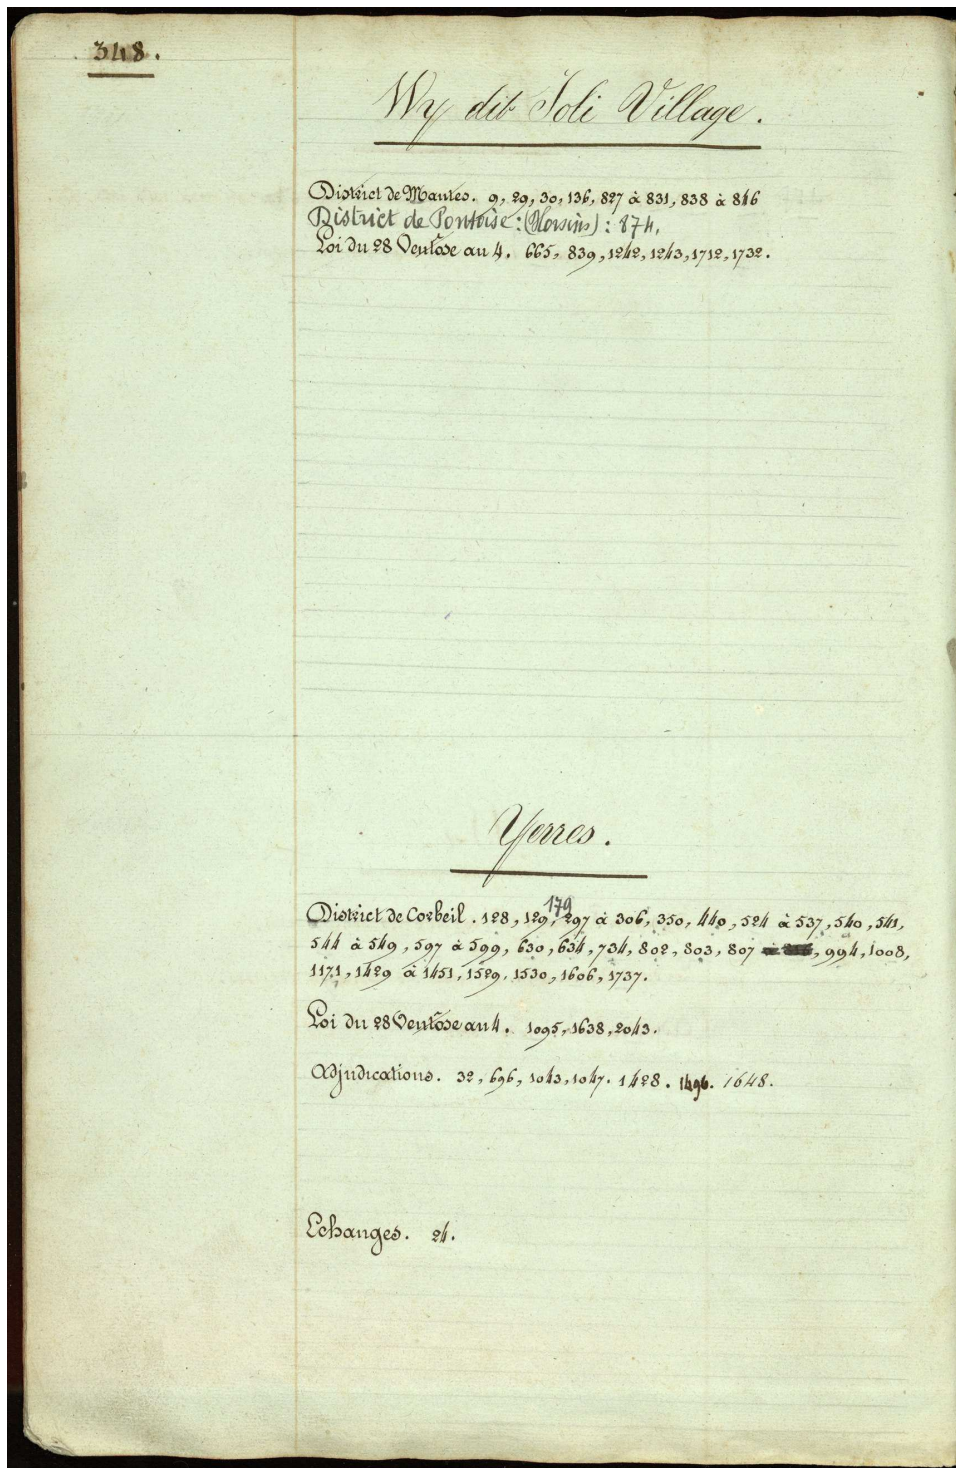 348.
Wy dit Joli Village.
District de Mantes. 9, 29, 30, 136, 827 à 831, 838 à 846
District de Pontoise : () : 874.
Loi du 28 Ventôse au 4. 665, 839, 1242, 1243, 1712, 1732.
Yerres.
179
District de Corbeil. 128, 129, 297 à 306, 350, 440, 524 à 537, 540, 541,
544 à 549, 597 à 599, 630, 634, 734, 802, 803, 807, 994, 1008,
1171, 1429 à 1451, 1529, 1530, 1606, 1737.
Loi du 28 Ventôse au 4. 1095, 1638, 2043.
Adjudications. 32, 696, 1043, 1047. 1428. 1496. 1648.
Echanges. 24.